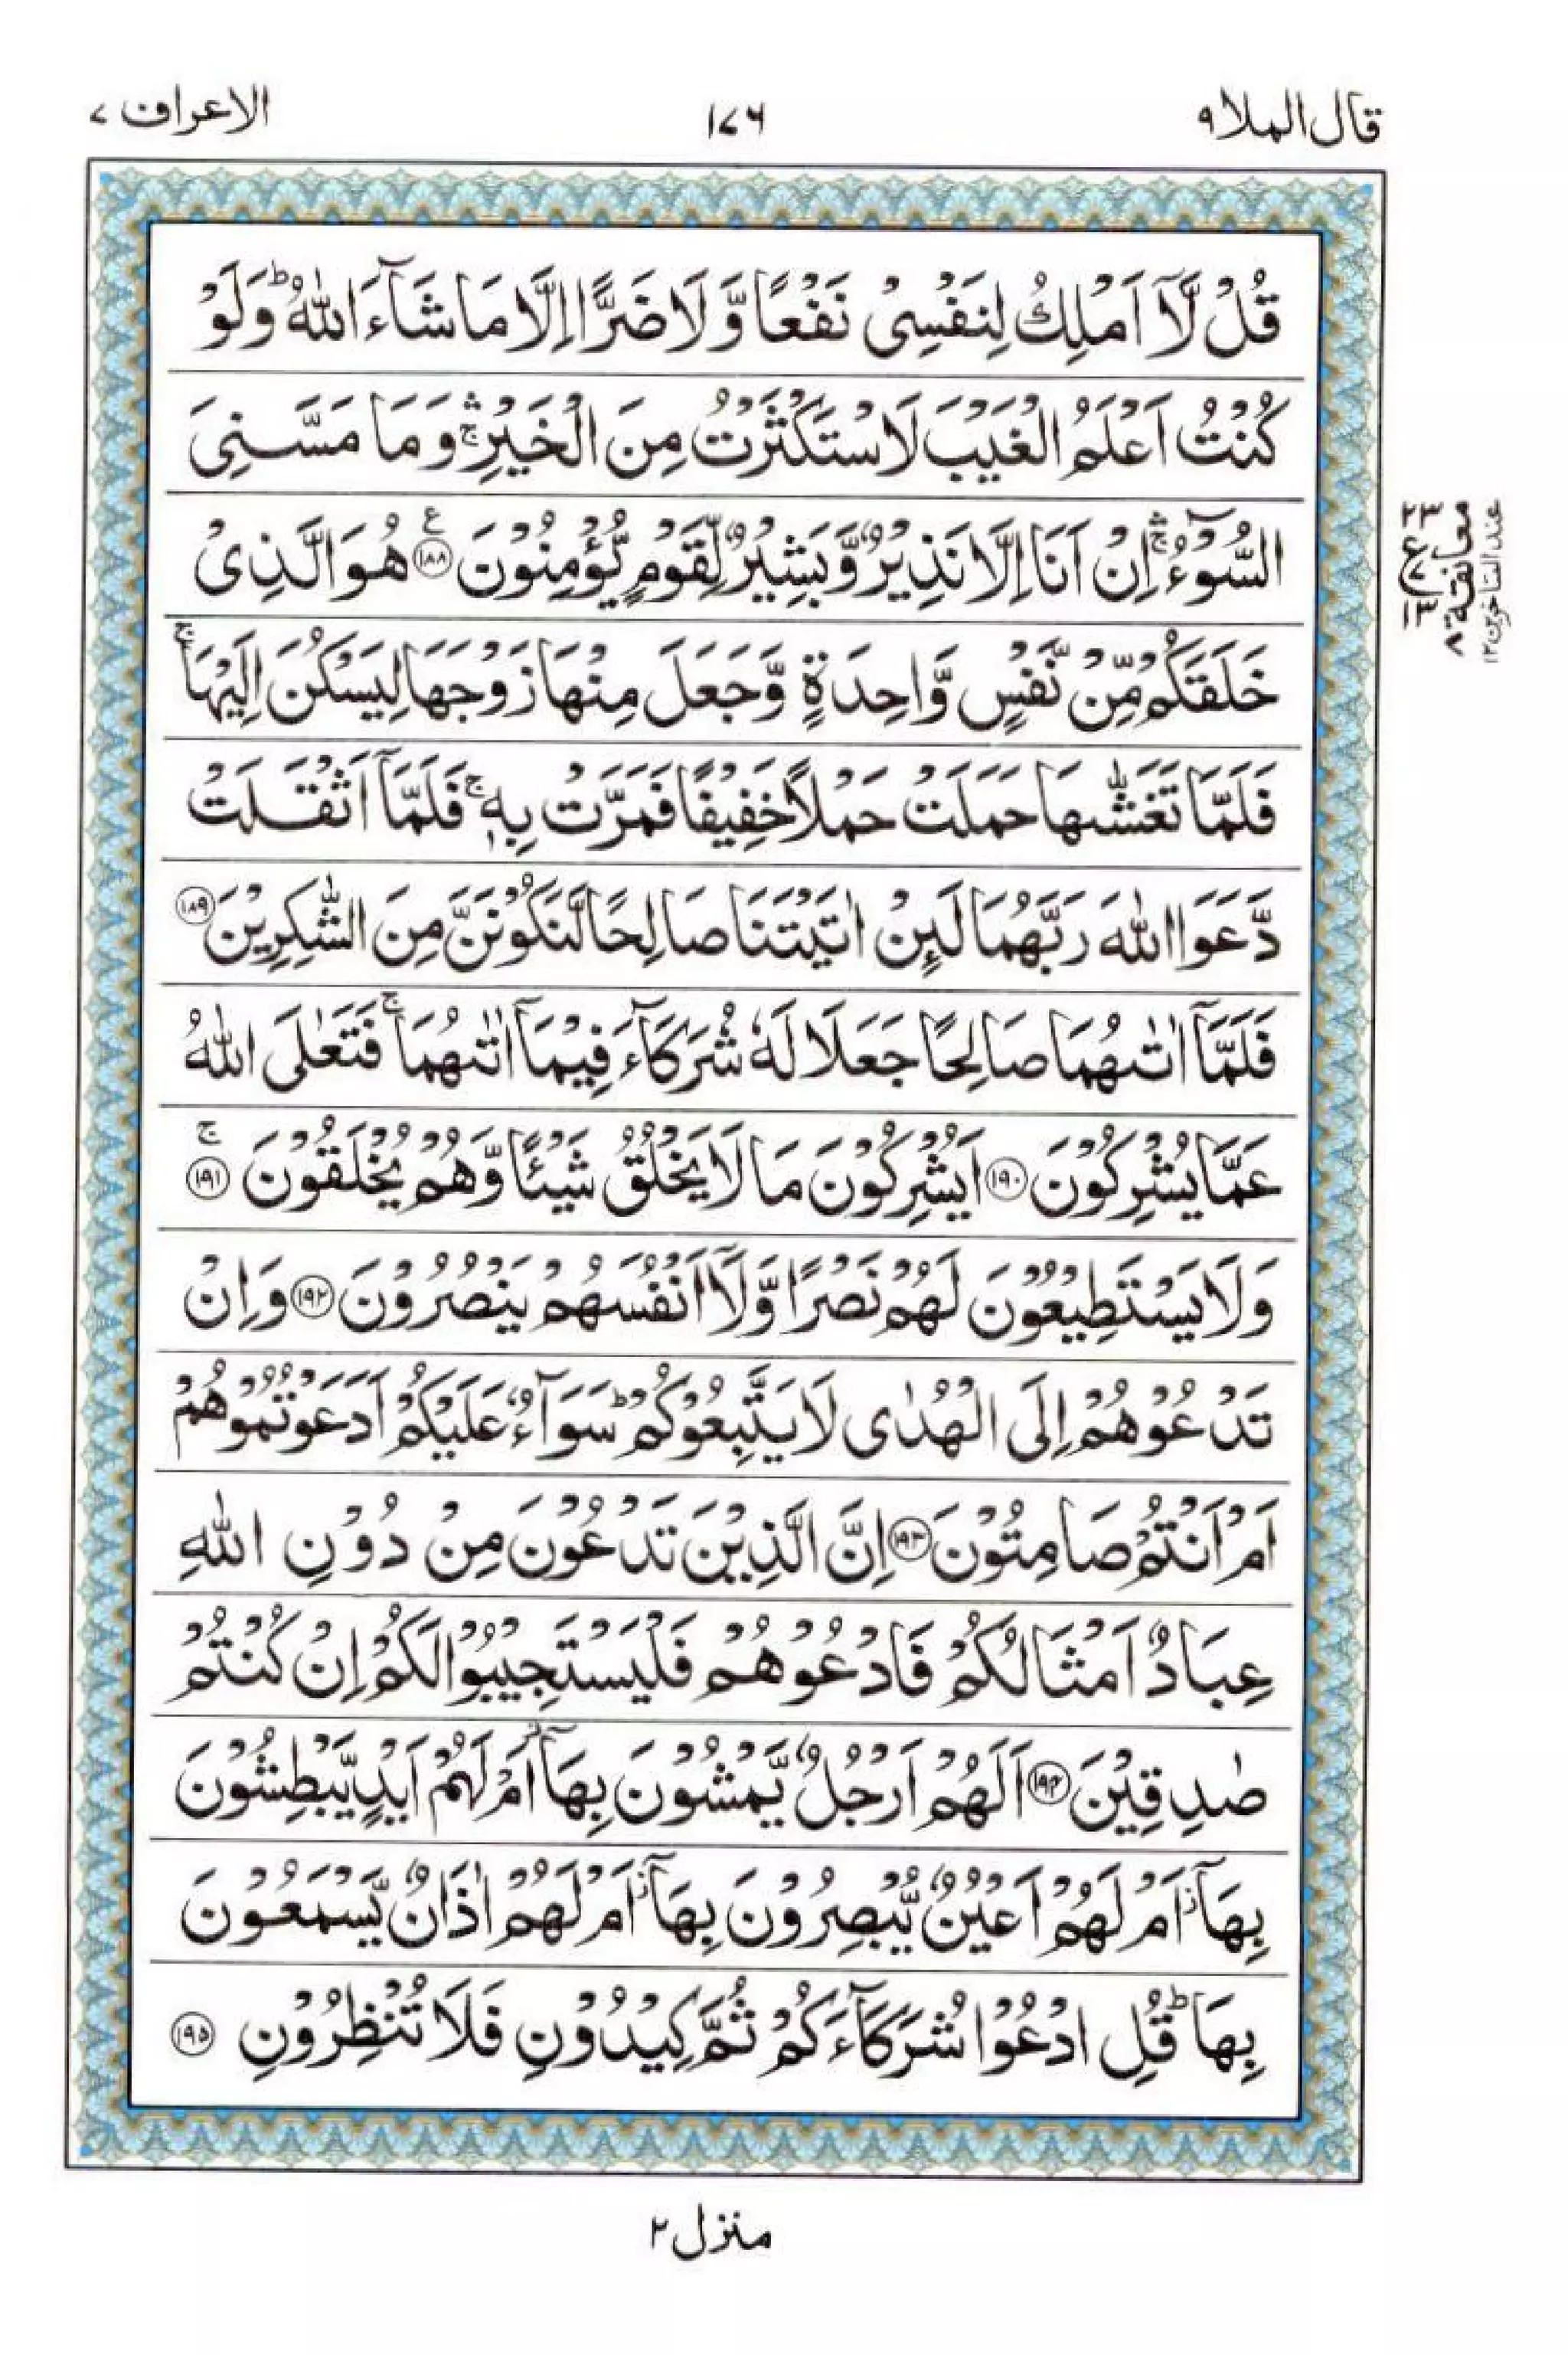 قال الملا ٩
١٧٦
الاعراف ٧
قُلْ لَّاۤ اَمْلِكُ لِنَفْسِیْ نَفْعًا وَّ لَا ضَرًّا اِلَّا مَا شَآءَ اللّٰهُ ؕ وَ لَوْ
كُنْتُ اَعْلَمُ الْغَیْبَ لَا سْتَكْثَرْتُ مِنَ الْخَیْرِ ۛۚ وَ مَا مَسَّنِیَ
السُّوْٓءُ ۛۚ اِنْ اَنَا اِلَّا نَذِیْرٌ وَّ بَشِیْرٌ لِّقَوْمٍ یُّؤْمِنُوْنَ ﴿۱۸۸﴾ هُوَ الَّذِیْ
خَلَقَكُمْ مِّنْ نَّفْسٍ وَّاحِدَةٍ وَّ جَعَلَ مِنْهَا زَوْجَهَا لِیَسْكُنَ اِلَیْهَا ۚ
فَلَمَّا تَغَشّٰىهَا حَمَلَتْ حَمْلًا خَفِیْفًا فَمَرَّتْ بِهٖ ۚ فَلَمَّاۤ اَثْقَلَتْ
دَّعَوَا اللّٰهَ رَبَّهُمَا لَىِٕنْ اٰتَیْتَنَا صَالِحًا لَّنَكُوْنَنَّ مِنَ الشّٰكِرِیْنَ ﴿۱۸۹﴾
فَلَمَّاۤ اٰتٰىهُمَا صَالِحًا جَعَلَا لَهٗ شُرَكَآءَ فِیْمَاۤ اٰتٰىهُمَا ۚ فَتَعٰلَی اللّٰهُ
عَمَّا یُشْرِكُوْنَ ﴿۱۹۰﴾ اَیُشْرِكُوْنَ مَا لَا یَخْلُقُ شَیْـًٔا وَّ هُمْ یُخْلَقُوْنَ ۚ﴿۱۹۱﴾
وَ لَا یَسْتَطِیْعُوْنَ لَهُمْ نَصْرًا وَّ لَاۤ اَنْفُسَهُمْ یَنْصُرُوْنَ ﴿۱۹۲﴾ وَ اِنْ
تَدْعُوْهُمْ اِلَی الْهُدٰی لَا یَتَّبِعُوْكُمْ ؕ سَوَآءٌ عَلَیْكُمْ اَدَعَوْتُمُوْهُمْ
اَمْ اَنْتُمْ صَامِتُوْنَ ﴿۱۹۳﴾ اِنَّ الَّذِیْنَ تَدْعُوْنَ مِنْ دُوْنِ اللّٰهِ
عِبَادٌ اَمْثَالُكُمْ فَادْعُوْهُمْ فَلْیَسْتَجِیْبُوْا لَكُمْ اِنْ كُنْتُمْ
صٰدِقِیْنَ ﴿۱۹۴﴾ اَلَهُمْ اَرْجُلٌ یَّمْشُوْنَ بِهَاۤ ؗ اَمْ لَهُمْ اَیْدٍ یَّبْطِشُوْنَ
بِهَاۤ ؗ اَمْ لَهُمْ اَعْیُنٌ یُّبْصِرُوْنَ بِهَاۤ ؗ اَمْ لَهُمْ اٰذَانٌ یَّسْمَعُوْنَ
بِهَا ؕ قُلِ ادْعُوْا شُرَكَآءَكُمْ ثُمَّ كِیْدُوْنِ فَلَا تُنْظِرُوْنِ ﴿۱۹۵﴾
٢٣
ع
٧
١٣
معانقة ٨
عند المتاخرين ١٢
منزل ٢